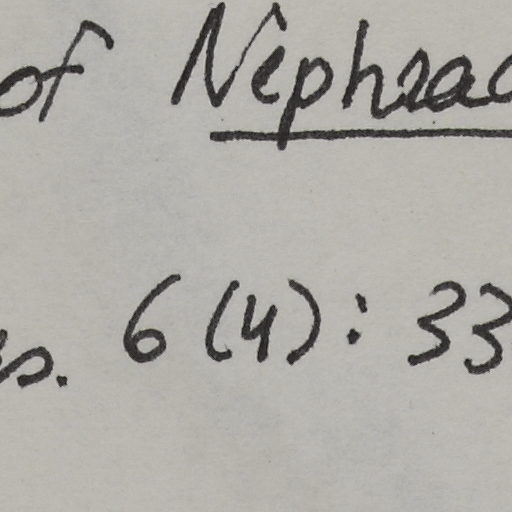 of Nephrac
s. 6(4): 33